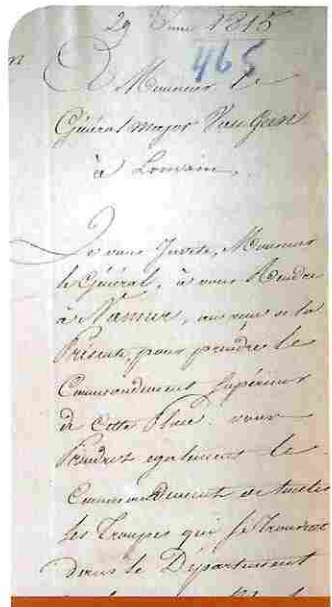 29 Juin 1815
465
A Monsieur le
Général Major Van Geen
à Louvain.
Je vous Invite, Monsieur
le Général, à vous Rendre
à Namur, au reçu de la
Présente, pour prendre le
Commandement Supérieur
de Cette Place. vous
Prendrez egalement le
Commandement de toutes
les Troupes qui se trouvent
dans le Département